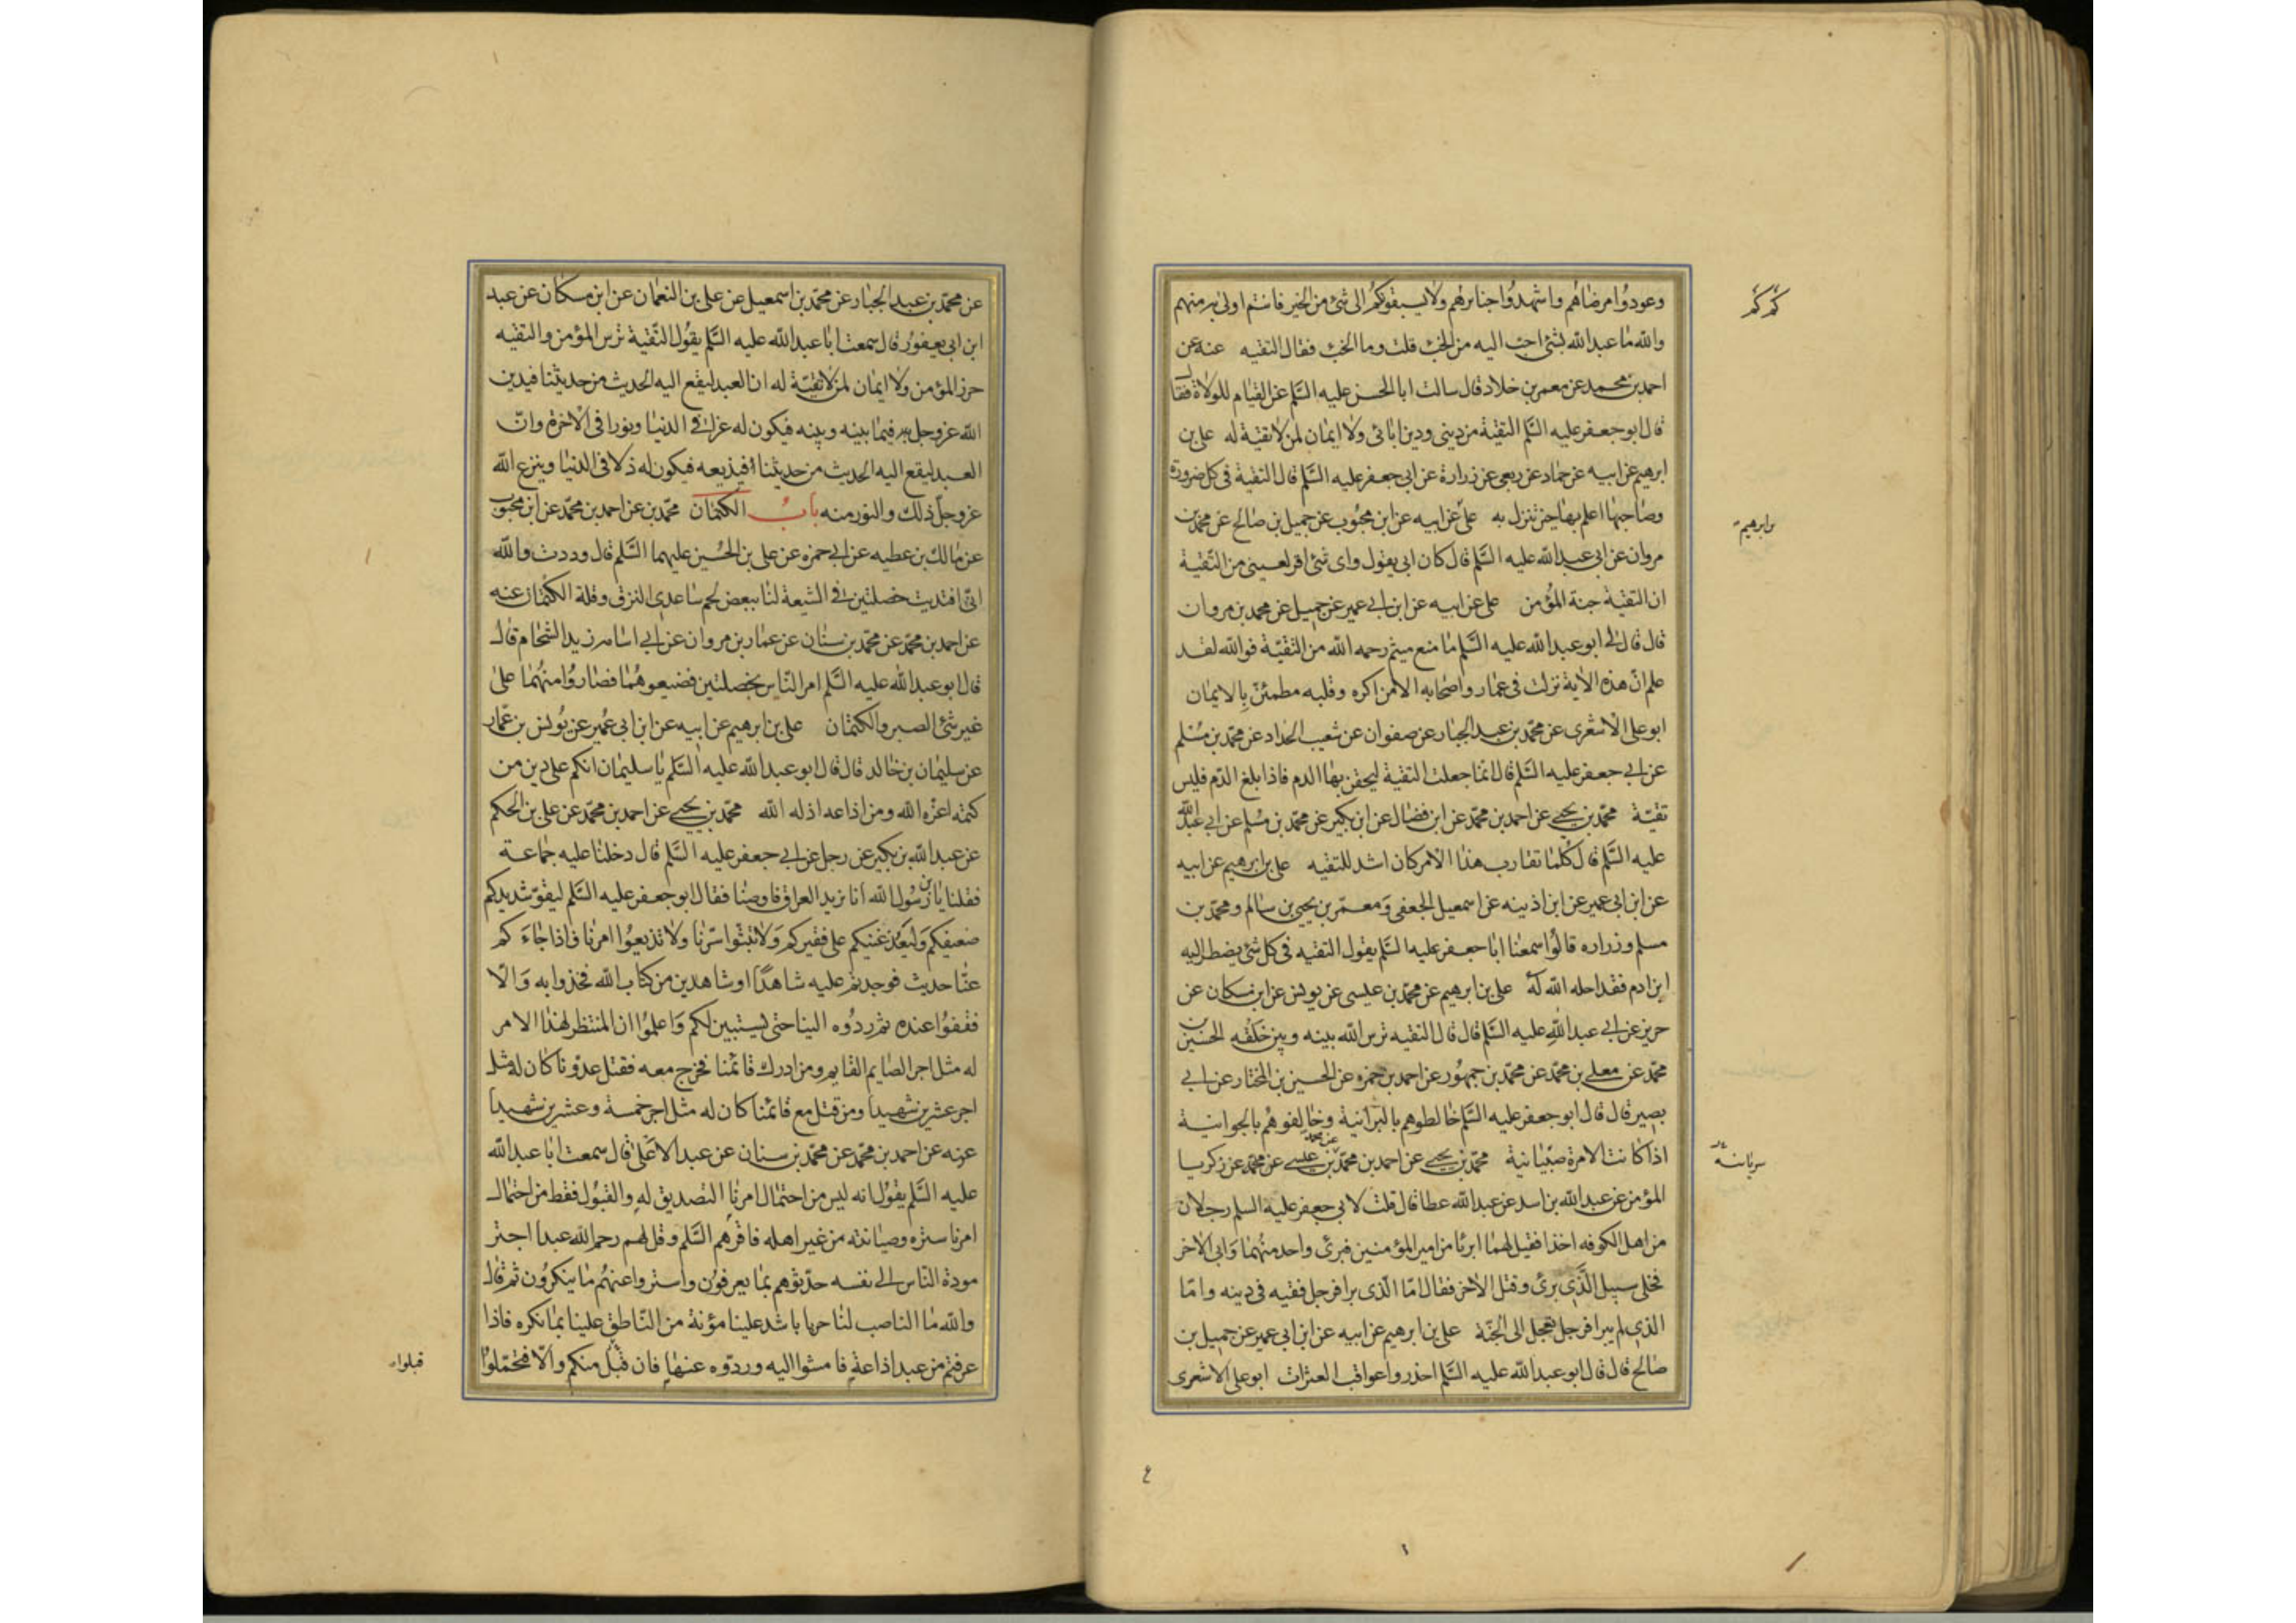 وعودوا مرضاهم واشهدوا جنائزهم ولا يسبقونكم الى شئ من الخير فانتم اولى به منهم
والله ما عبد الله بشئ احب اليه من الخبء قلت وما الخبء فقال التقيه عنه عن
احمد بن محمد عن معمر بن خلاد قال سالت ابا الحسن عليه السلم عن القيام للولاة فقال
قال ابو جعفر عليه السلم التقية من ديني ودين ابائى ولا ايمان لمن لا تقية له على بن
ابرهيم عن ابيه عن حماد عن ربعى عن زرارة عن ابى جعفر عليه السلم قال التقية فى كل ضرورة
وصاحبها اعلم بها حين تنزل به على عن ابيه عن ابن محبوب عن جميل بن صالح عن محمد بن
مروان عن ابى عبد الله عليه السلم قال كان ابى يقول واى شئ اقر لعينى من التقية
ان التقية جنة المؤمن على عن ابيه عن ابن ابى عمير عن جميل عن محمد بن مروان
قال قال لى ابو عبد الله عليه السلم ما منع ميثم رحمه الله من التقية فوالله لقد
علم ان هذه الاية نزلت فى عمار واصحابه الا من اكره وقلبه مطمئن بالايمان
ابو على الاشعرى عن محمد بن عبد الجبار عن صفوان عن شعيب الحداد عن محمد بن مسلم
عن ابى جعفر عليه السلم قال انما جعلت التقية ليحقن بها الدم فاذا بلغ الدم فليس
تقية محمد بن يحيى عن احمد بن محمد عن ابن فضال عن ابن بكير عن محمد بن مسلم عن ابى عبد الله
عليه السلم قال كلما تقارب هذا الامر كان اشد للتقيه على بن ابرهيم عن ابيه
عن ابن ابى عمير عن ابن اذينه عن اسمعيل الجعفى ومعمر بن يحيى بن سالم ومحمد بن
مسلم وزراره قالوا سمعنا ابا جعفر عليه السلم يقول التقيه فى كل شئ يضطر اليه
ابن ادم فقد احله الله له على بن ابرهيم عن محمد بن عيسى عن يونس عن ابن مسكان عن
حريز عن ابى عبد الله عليه السلم قال قال التقيه ترس الله بينه وبين خلقه الحسين بن
محمد عن معلى بن محمد عن محمد بن جمهور عن احمد بن حمزه عن الحسين بن المختار عن ابى
بصير قال قال ابو جعفر عليه السلم خالطوهم بالبرانية وخالفوهم بالجوانية
اذا كانت الامرة صبيانية محمد بن يحيى عن احمد بن محمد بن عيسى عن محمد عن زكريا
المؤمن عن عبد الله بن اسد عن عبد الله عطا قال قلت لابى جعفر عليه السلم رجلان
من اهل الكوفه اخذا فقيل لهما ابرئا من امير المؤمنين فبرئ واحد منهما وابى الاخر
فخلى سبيل الذى برئ وقتل الاخر فقال اما الذى برا فرجل فقيه فى دينه واما
الذى لم يبرا فرجل تعجل الى الجنة على بن ابرهيم عن ابيه عن ابن ابى عمير عن جميل بن
صالح قال قال ابو عبد الله عليه السلم احذروا عواقب العثرات ابو على الاشعرى
كم كم
بن ابرهيم
عن محمد بن عبد الجبار عن محمد بن اسمعيل عن على بن النعمان عن ابن مسكان عن عبد
ابن ابى يعفور قال سمعت ابا عبد الله عليه السلم يقول التقية ترس المؤمن والتقيه
حرز المؤمن ولا ايمان لمن لا تقية له ان العبد ليقع اليه الحديث من حديثنا فيدين
الله عز وجل به فيما بينه وبينه فيكون له عزا فى الدنيا ونورا فى الاخرة وان
العبد ليقع اليه الحديث من حديثنا فيذيعه فيكون له ذلا فى الدنيا وينزع الله
عز وجل ذلك والنور منه باب الكتمان محمد بن عن احمد بن محمد عن ابن محبوب
عن مالك بن عطيه عن ابى حمزه عن على بن الحسين عليهما السلم قال وددت والله
انى افتديت خصلتين فى الشيعة لنا ببعض لحم ساعدى النزق وقلة الكتمان عنه
عن احمد بن محمد عن محمد بن سنان عن عمار بن مروان عن ابى اسامه زيد الشحام قال
قال ابو عبد الله عليه السلم امر الناس بخصلتين فضيعوهما فصاروا منهما على
غير شئ الصبر والكتمان على بن ابرهيم عن ابيه عن ابن ابى عمير عن يونس بن عمار
عن سليمان بن خالد قال قال ابو عبد الله عليه السلم يا سليمان انكم على دين من
كتمه اعزه الله ومن اذاعه اذله الله محمد بن يحيى عن احمد بن محمد عن على بن الحكم
عن عبد الله بن بكير عن رجل عن ابى جعفر عليه السلم قال دخلنا عليه جماعة
فقلنا يا بن رسول الله انا نريد العراق فاوصنا فقال ابو جعفر عليه السلم ليقو شديدكم
ضعيفكم وليعد غنيكم على فقيركم ولا تبثوا سرنا ولا تذيعوا امرنا فاذا جاءكم
عنا حديث فوجدتم عليه شاهدا او شاهدين من كتاب الله فخذوا به والا
فقفوا عنده ثم ردوه الينا حتى يستبين لكم واعلموا ان المنتظر لهذا الامر
له مثل اجر الصايم القايم ومن ادرك قائمنا فخرج معه فقتل عدونا كان له مثل
اجر عشرين شهيدا ومن قتل مع قائمنا كان له مثل اجر خمسة وعشرين شهيدا
عنه عن احمد بن محمد عن محمد بن سنان عن عبد الاعلى قال سمعت ابا عبد الله
عليه السلم يقول انه ليس من احتمال امرنا التصديق له والقبول فقط من احتمال
امرنا ستره وصيانته من غير اهله فاقرهم السلم وقل لهم رحم الله عبدا اجتر
مودة الناس الى نفسه حدثوهم بما يعرفون واستروا عنهم ما ينكرون ثم قال
والله ما الناصب لنا حربا باشد علينا مؤنة من الناطق علينا بما نكره فاذا
عرفتم من عبد اذاعة فامشوا اليه وردوه عنها فان قبل منكم والا فتحملوا
قبلوا